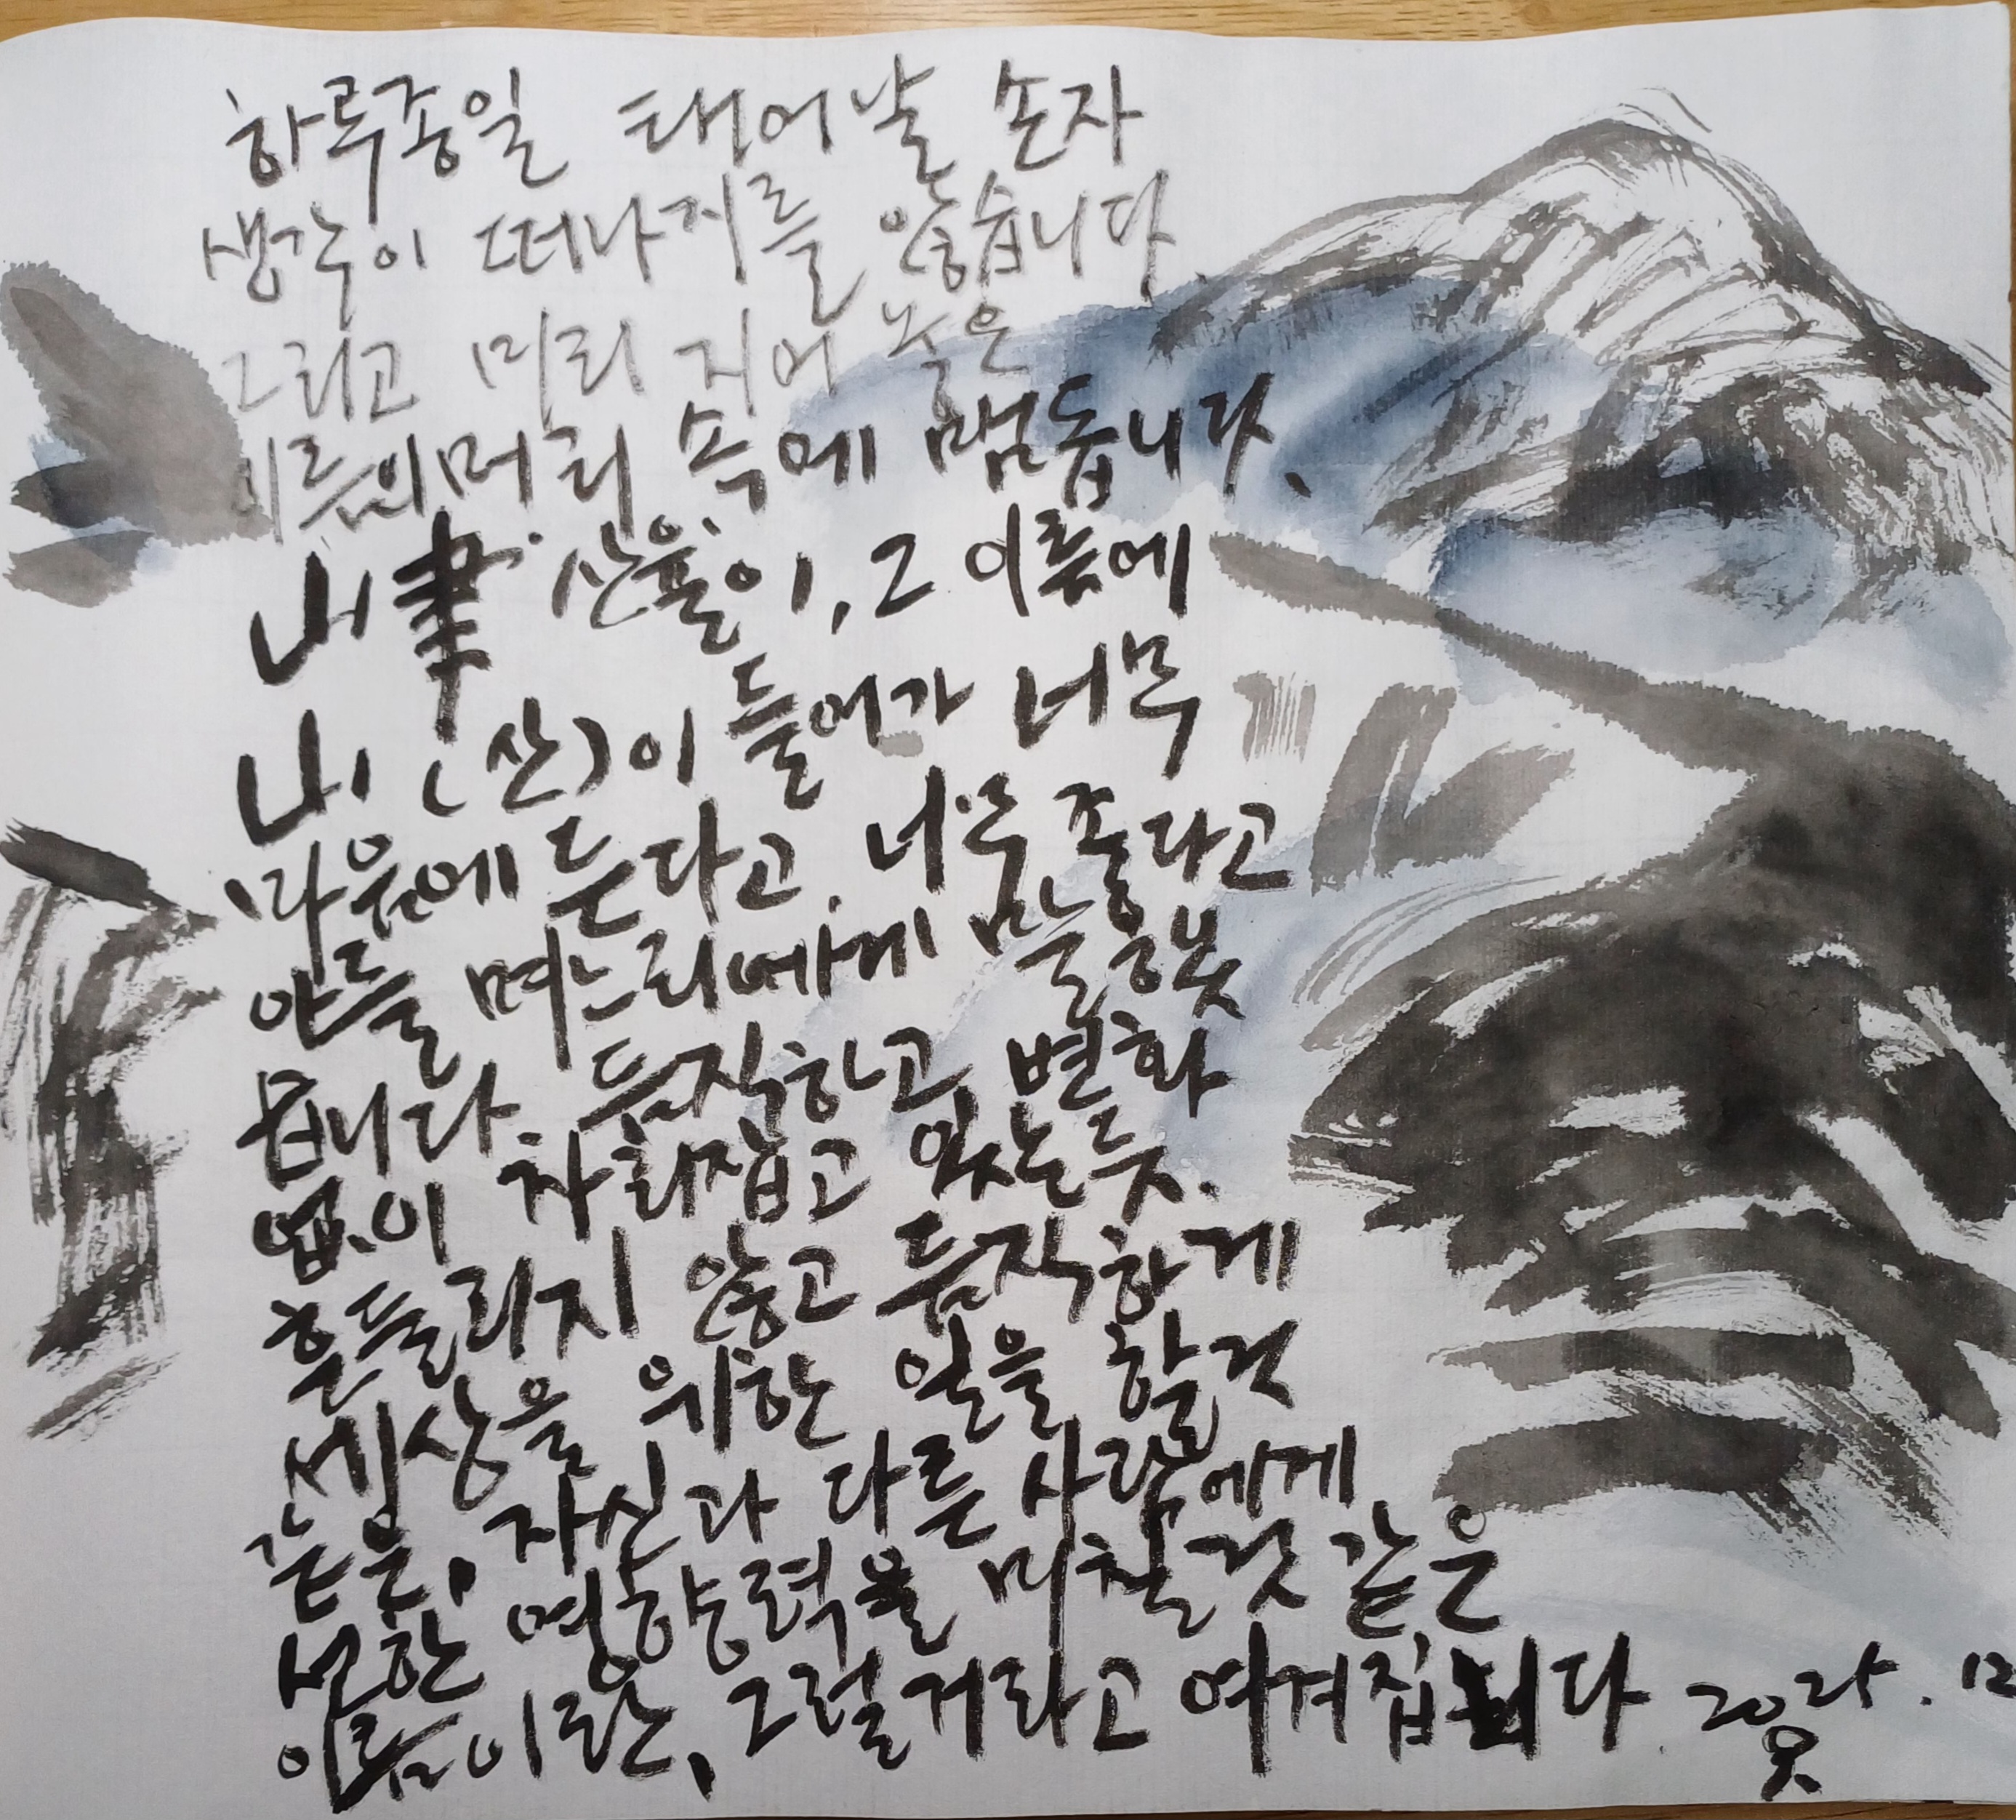 하루종일 태어날 손자
생각이 떠나지를 않습니다.
그리고 미리 지어 놓은
이름이 머리 속에 맴돕니다.
山聿 산율이, 그 이름에
山 (산)이 들어가 너무
마음에 든다고. 너무 좋다고
아들 며느리에게 말했
답니다. 듬직하고 변화
없이 자리잡고 있는듯.
흔들리지 않고 듬직하게
세상을 위한 일을 할것
같은, 자신과 다른 사람에게
선한 영향력을 미칠것 같은
이름이란, 그럴거라고 여겨집니다. 2025. 12